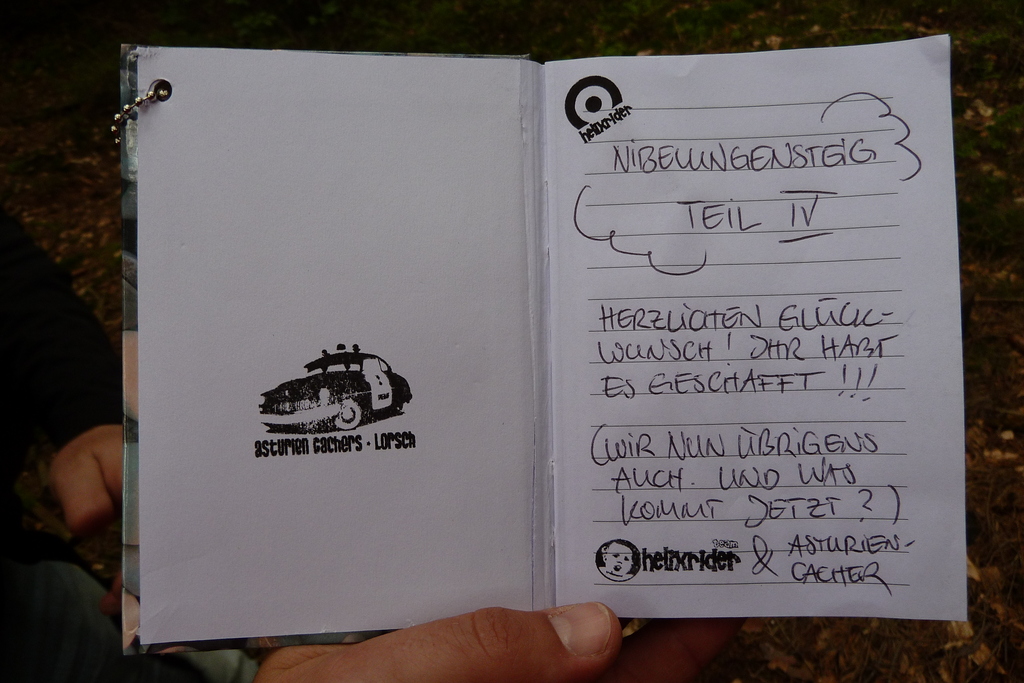 asturien cachers · Lorsch
helixrider
NIBELUNGENSTEIG
TEIL IV
HERZLICHEN GLÜCK-
WUNSCH! IHR HABT
ES GESCHAFFT!!!
(WIR NUN ÜBRIGENS
AUCH. UND WAS
KOMMT JETZT?)
team
helixrider & ASTURIEN-
CACHER